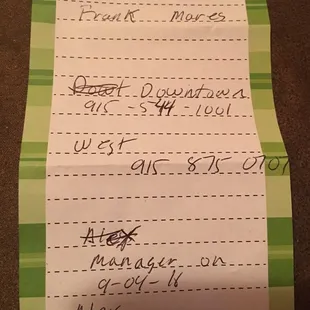 Frank Mares
Downtown
915-544-1001
West
915 875 0707
Alex
Manager on
9-04-16
Alex